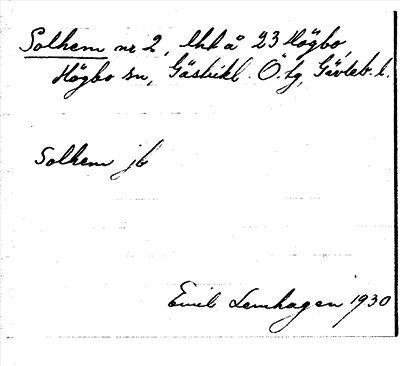 Solhem nr 2, lht å 23 Högbo,
Högbo sn, Gästrikl. Ö. tg, Gävleb. l.
Solhem jb
Emil Lemhagen 1930